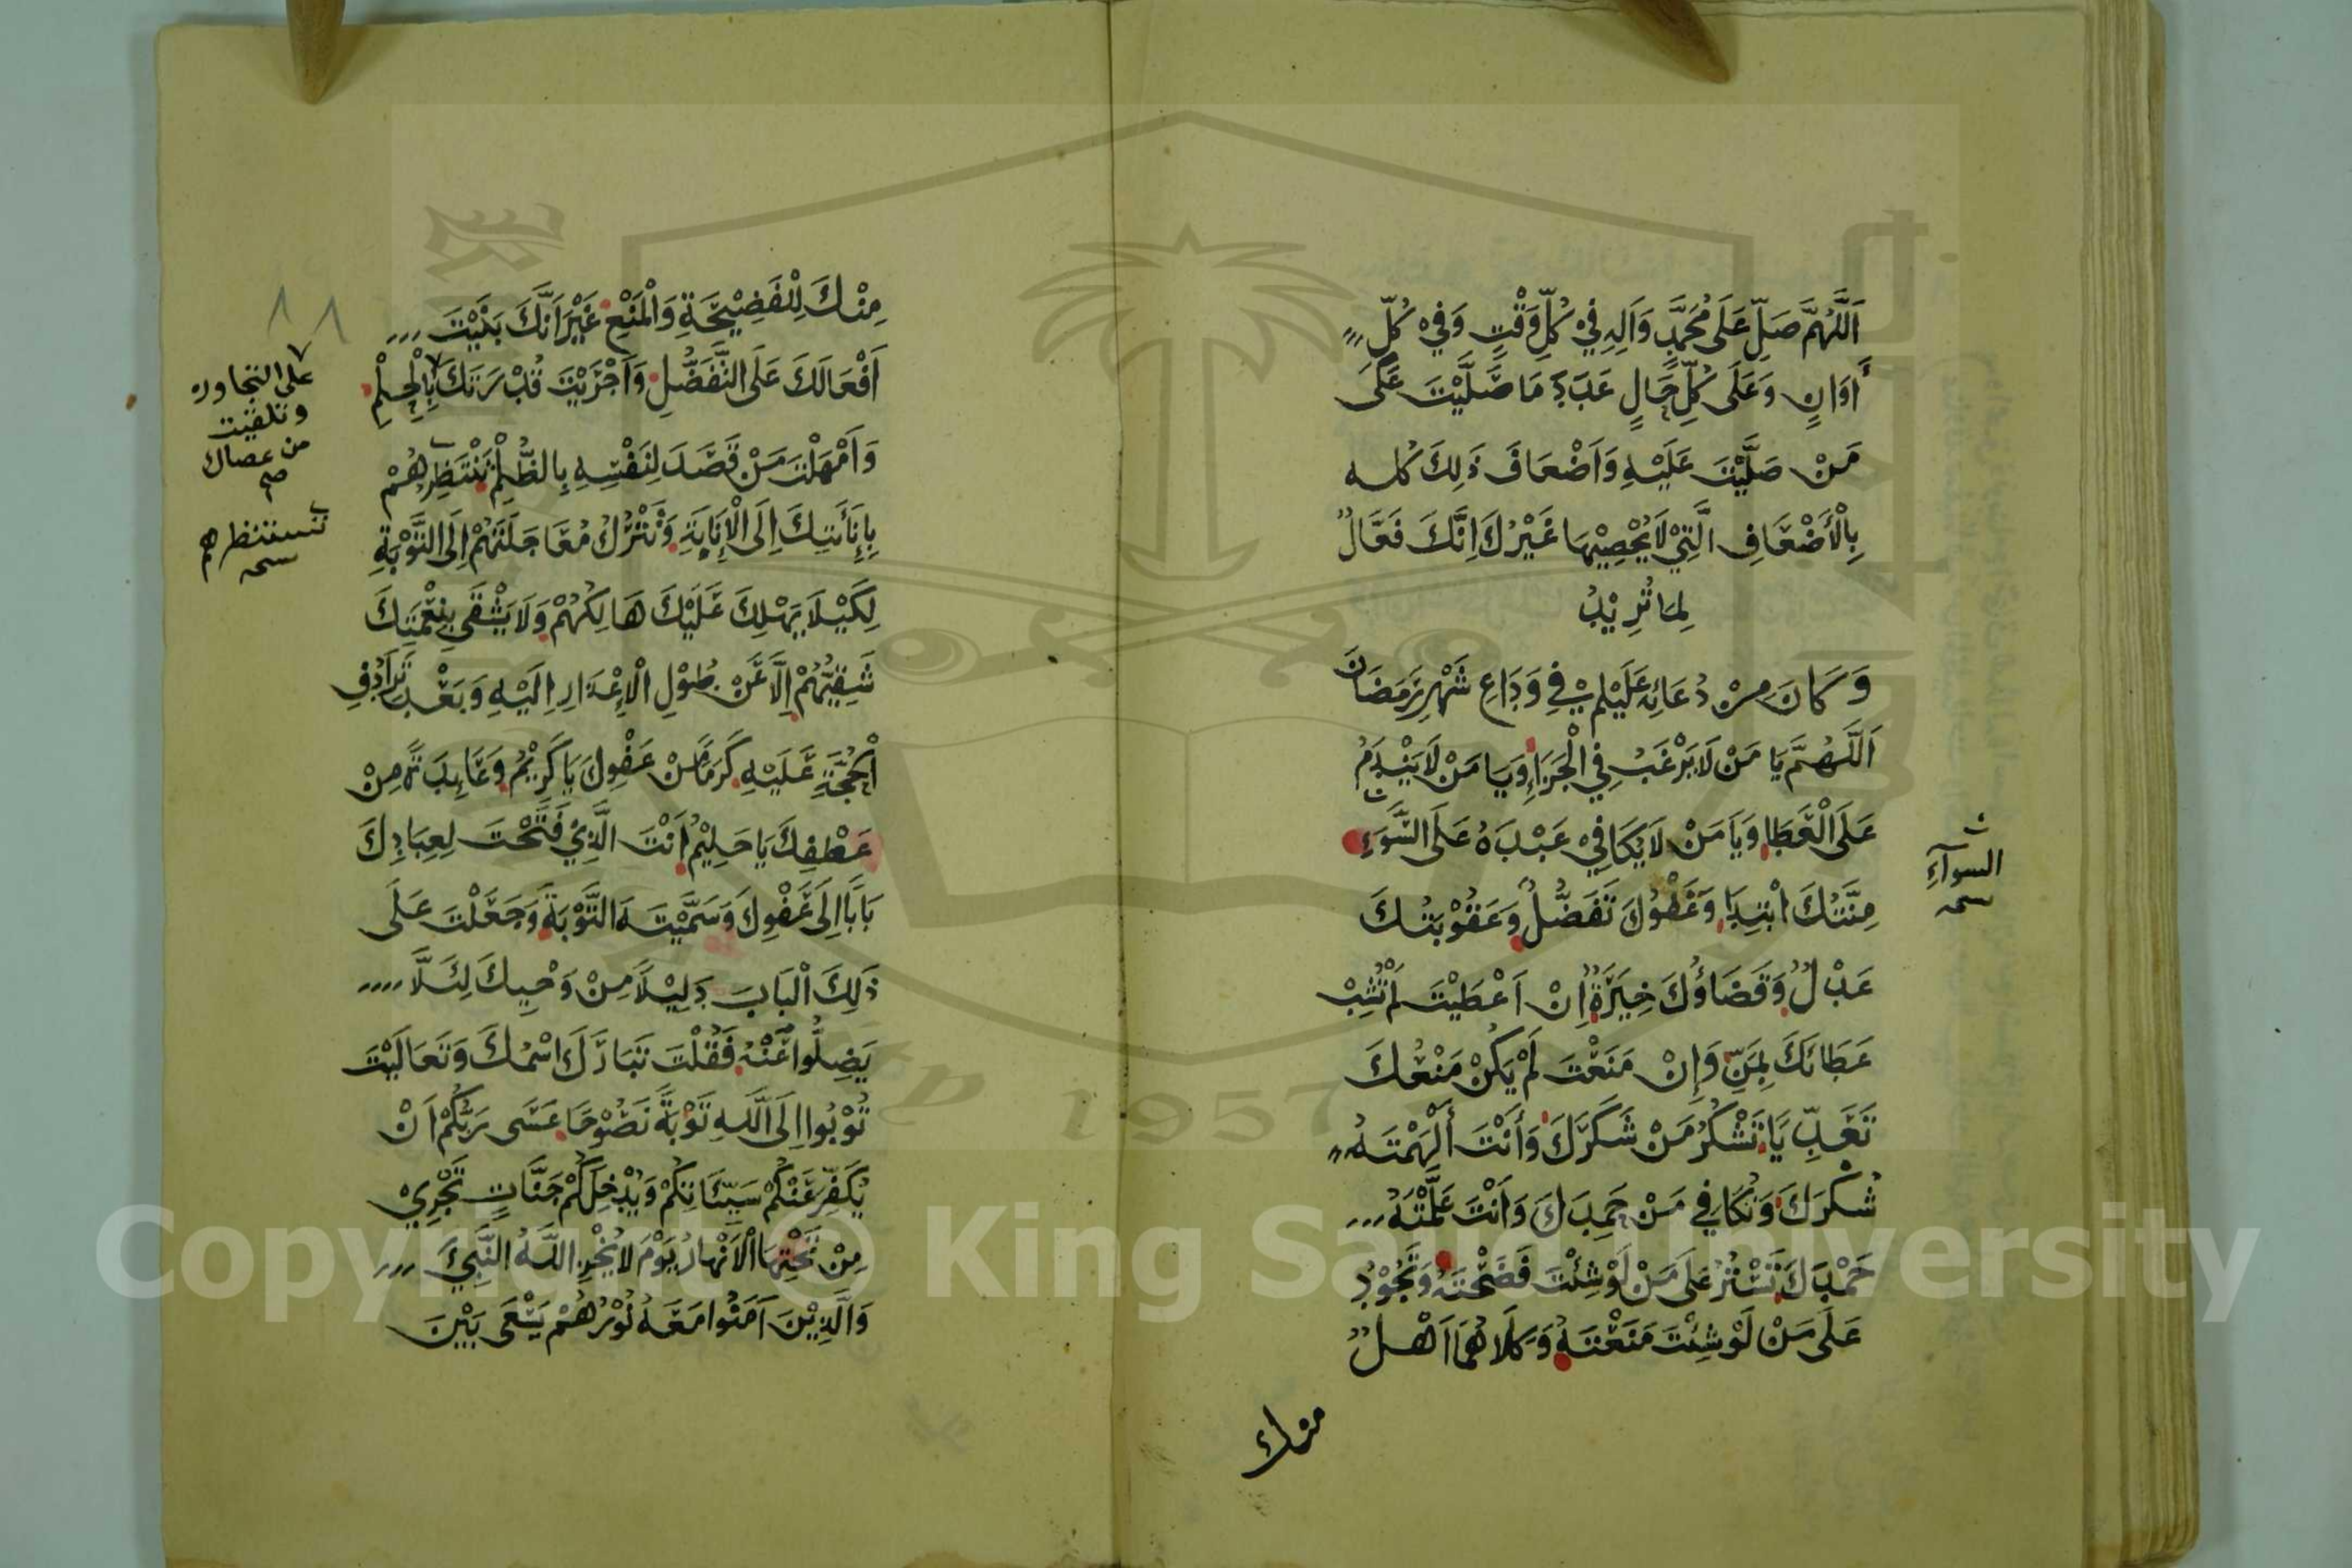 اَللّٰهُمَّ صَلِّ عَلَى مُحَمَّدٍ وَاٰلِهِ فِيْ كُلِّ وَقْتٍ وَفِيْ كُلِّ
أَوَانٍ وَعَلَى كُلِّ حَالٍ عَدَدَ مَا صَلَّيْتَ عَلَى
مَنْ صَلَّيْتَ عَلَيْهِ وَاَضْعَافَ ذٰلِكَ كُلِّهِ
بِالْأَضْعَافِ الَّتِيْ لَا يُحْصِيْهَا غَيْرُكَ اِنَّكَ فَعَّالٌ
لِمَا تُرِيْدُ
وَكَانَ مِنْ دُعَائِهِ عَلَيْلم فِي وَدَاعِ شَهْرِ رَمَضَانَ
اَللّٰهُمَّ يَا مَنْ لَا يَرْغَبُ فِي الْجَزَاءِ وَيَا مَنْ لَا يَنْدَمُ
عَلَى الْعَطَا وَيَا مَنْ لَا يُكَافِيْ عَبْدَهُ عَلَى السَّوَاءِ
السوآءِ
مِنَّتُكَ ابْتِدَا وَعَفْوُكَ تَفَضُّلٌ وَعَقُوْبَتُكَ
عَدْلٌ وَقَضَاؤُكَ خِيَرَةٌ اِنْ اَعْطَيْتَ لَمْ تَشُبْ
عَطَائَكَ بِمَنٍّ وَاِنْ مَنَعْتَ لَمْ يَكُنْ مَنْعُكَ
تَعَدِّيَا تَشْكُرُ مَنْ شَكَرَكَ وَأَنْتَ أَلْهَمْتَهُ
شُكْرَكَ وَتُكَافِي مَنْ حَمِدَكَ وَاَنْتَ عَلَّمْتَهُ
حَمْدَكَ تَسْتُرُ عَلَى مَنْ لَوْ شِئْتَ فَضَحْتَهُ وَتَجُوْدُ
عَلَى مَنْ لَوْ شِئْتَ مَنَعْتَهُ وَكِلَاهُمَا اَهْلٌ
منك
مِنْكَ لِلْفَضِيْحَةِ وَالْمَنْعِ غَيْرَ اَنَّكَ بَنَيْتَ
اَفْعَالَكَ عَلَى التَّفَضُّلِ وَاَجْرَيْتَ قُدْرَتَكَ بِالْحِلْمِ
على التجاوز
وتلقيت
من عصاك
صح
وَاَمْهَلْتَ مَنْ قَصَدَ لِنَفْسِهِ بِالظُّلْمِ تَنْتَظِرُهُمْ
تستنظرهم
بِاِنَأَتِكَ اِلَى الْاِنَابَةِ وَتَتْرُكُ مُعَاجَلَتَهُمْ اِلَى التَّوْبَةِ
لِكَيْلَا يَهْلِكَ عَلَيْكَ هَالِكُهُمْ وَلَا يَشْقَى بِنِعْمَتِكَ
شَقِيُّهُمْ اِلَّا عَنْ طُوْلِ الْاِعْذَارِ اِلَيْهِ وَبَعْدَ تَرَادُفِ
الْحُجَّةِ عَلَيْهِ كَرَمًا مِنْ عَفْوِكَ يَا كَرِيْمُ وَعَائِدَةً مِنْ
عَطْفِكَ يَا حَلِيْمُ اَنْتَ الَّذِيْ فَتَحْتَ لِعِبَادِكَ
بَابًا اِلَى عَفْوِكَ وَسَمَّيْتَهُ التَّوْبَةَ وَجَعَلْتَ عَلَى
ذٰلِكَ الْبَابِ دَلِيْلًا مِنْ وَحْيِكَ لِئَلَّا
يَضِلُّوا عَنْهُ فَقُلْتَ تَبَارَكَ اسْمُكَ وَتَعَالَيْتَ
تُوْبُوا اِلَى اللّٰهِ تَوْبَةً نَصُوْحًا عَسَى رَبُّكُمْ اَنْ
يُكَفِّرَ عَنْكُمْ سَيِّئَاتِكُمْ وَيُدْخِلَكُمْ جَنَّاتٍ تَجْرِيْ
مِنْ تَحْتِهَا الْاَنْهَارُ يَوْمَ لَا يُخْزِي اللّٰهُ النَّبِيَّ
وَالَّذِيْنَ اٰمَنُوا مَعَهُ نُوْرُهُمْ يَسْعَى بَيْنَ
Copyright © King Saud University
1957